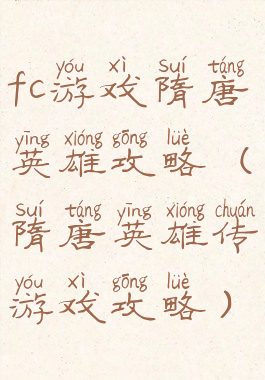 yóu xì suí táng
fc游戏隋唐
yīng xióng gōng lüè
英雄攻略（
suí táng yīng xióng chuán
隋唐英雄传
yóu xì gōng lüè
游戏攻略）